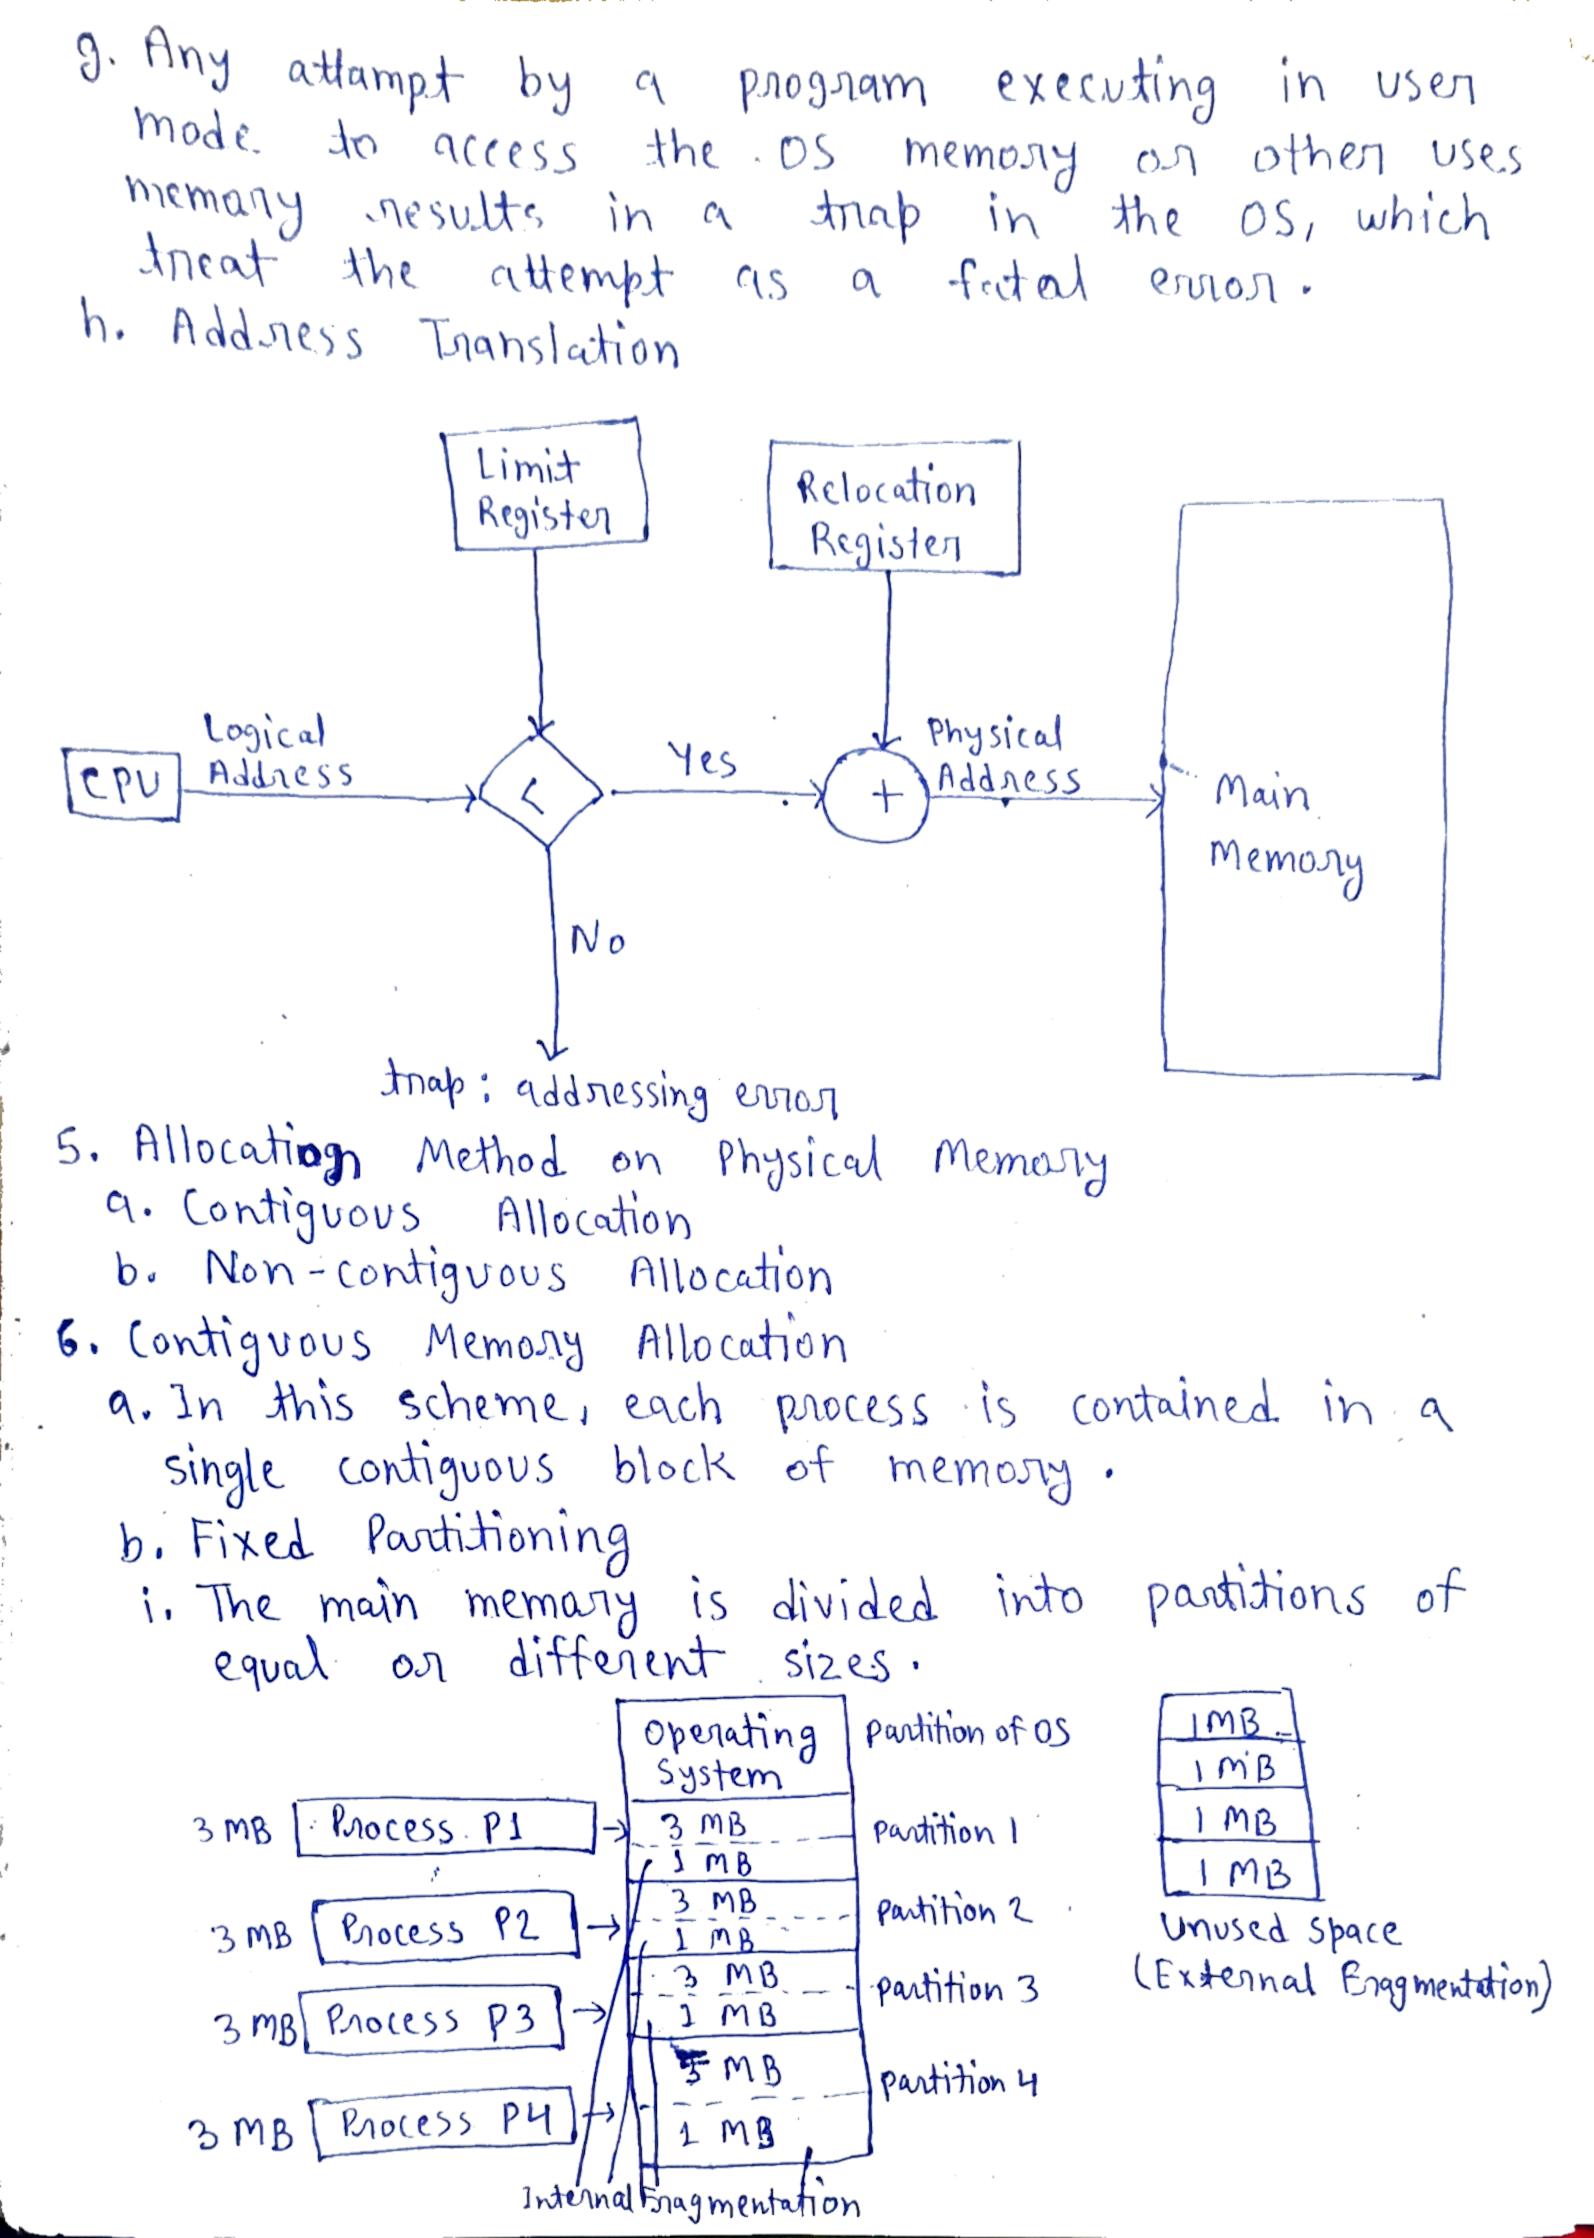 g. Any attampt by a program executing in user
mode to access the OS memory or other uses
memary results in a trap in the OS, which
treat the attempt as a fatal error.
h. Address Translation
Limit
Register
Relocation
Register
CPU
Logical
Address
<
Yes
+
Physical
Address
Main
Memory
No
trap: addressing error
5. Allocation Method on Physical Memory
a. Contiguous Allocation
b. Non-contiguous Allocation
6. Contiguous Memory Allocation
a. In this scheme, each process is contained in a
single contiguous block of memory.
b. Fixed Partitioning
i. The main memary is divided into partitions of
equal or different sizes.
Operating
System
Partition of OS
3 MB Process P1
3 MB
1 MB
Partition 1
3 MB Process P2
3 MB
1 MB
Partition 2
3 MB Process P3
3 MB
1 MB
partition 3
3 MB Process P4
MB
1 MB
partition 4
Internal Fragmentation
1MB
1 MB
1 MB
1 MB
Unused space
(External Fragmentation)